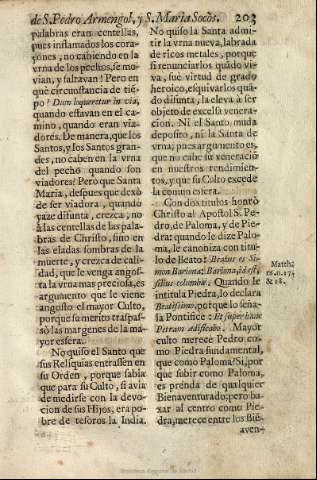 de S. Pedro Armengol, y S. Maria Socòs. 203
palabras eran centellas,
pues inflamados los cora-
çones, no cabiendo en la
vrna de los pechos, se mo-
vian, y saltavan! Pero en
què circunstancia de tié-
po? Dum loqueretur in via,
quando estavan en el ca-
mino, quando eran via-
dores. De manera, que los
Santos, y los Santos gran-
des, no caben en la vrna
del pecho quando son
viadores! Pero que Santa
Maria, despues que dexò
de ser viadora, quando
yaze difunta, crezca, no
à las centellas de las pala-
bras de Christo, sino en
las eladas sombras de la
muerte, y crezca de cali-
dad, que le venga angos-
ta la vrna mas preciosa, es
argumento que le viene
angosto el mayor Culto,
porque su merito traspas-
sò las margenes de la ma-
yor esfera.
No quiso el Santo que
sus Reliquias entrassen en
su Orden, porque sabia
que para su Culto, si avia
de medirse con la devo-
cion de sus Hijos, era po-
bre de tesoros la India.
No quiso la Santa admi-
tir la vrna nueva, labrada
de ricos metales, porque
si renunciarlos quãdo vi-
va, fuè virtud de grado
heroico, esquivarlos quã-
do difunta, la eleva à ser
objeto de excelsa venera-
cion. Ni el Santo muda
deposito, ni la Santa de
vrna; pues argumento es,
que no cabe su veneraciò
en nuestros rendimien-
tos, y que su Culto excede
la comun esfera.
Con dos titulos honrò
Christo al Apostol S. Pe-
dro, de Paloma, y de Pie-
dra: quando le dize Palo-
ma, le canoniza con titu-
lo de Beato: Beatus es Si-
mon Bariona: Bariona, id est,
filius columbæ. Quando le
intitula Piedra, lo declara
Beatissimo, porque lo seña-
la Pontifice: Et super hanc
Petram ædificabo. Mayor
culto merece Pedro co-
mo Piedra fundamental,
que como Paloma? Sì, por
que subir como Paloma,
es prenda de qualquier
Bienaventurado; pero ba-
xar al centro como Pie-
dra, merece entre los Biē-
aven-
Matth.
16. n. 17.
& 18.
Biblioteca Regional de Madrid